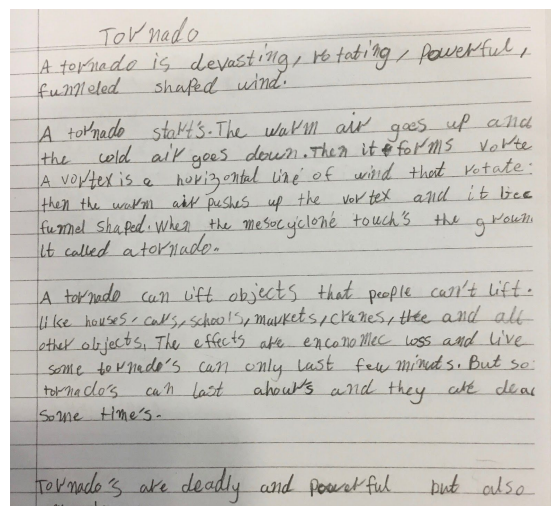 Tornado
A tornado is devasting, rotating, powerful,
funneled shaped wind.
A tornado start's. The warm air goes up and
the cold air goes down. Then it forms vorte
A vortex is a horizontal line of wind that rotate.
then the warm air pushes up the vortex and it bec
funnel shaped. When the mesocyclone touch's the groun
it called a tornado.
A tornado can lift objects that people can't lift.
like houses, cars, schools, markets, cranes, and all
other objects. The effects are enconomec loss and live
some tornado's can only last few minuts. But so
tornado's can last ahours and they are dea
some time's.
Tornado's are deadly and powerful but also